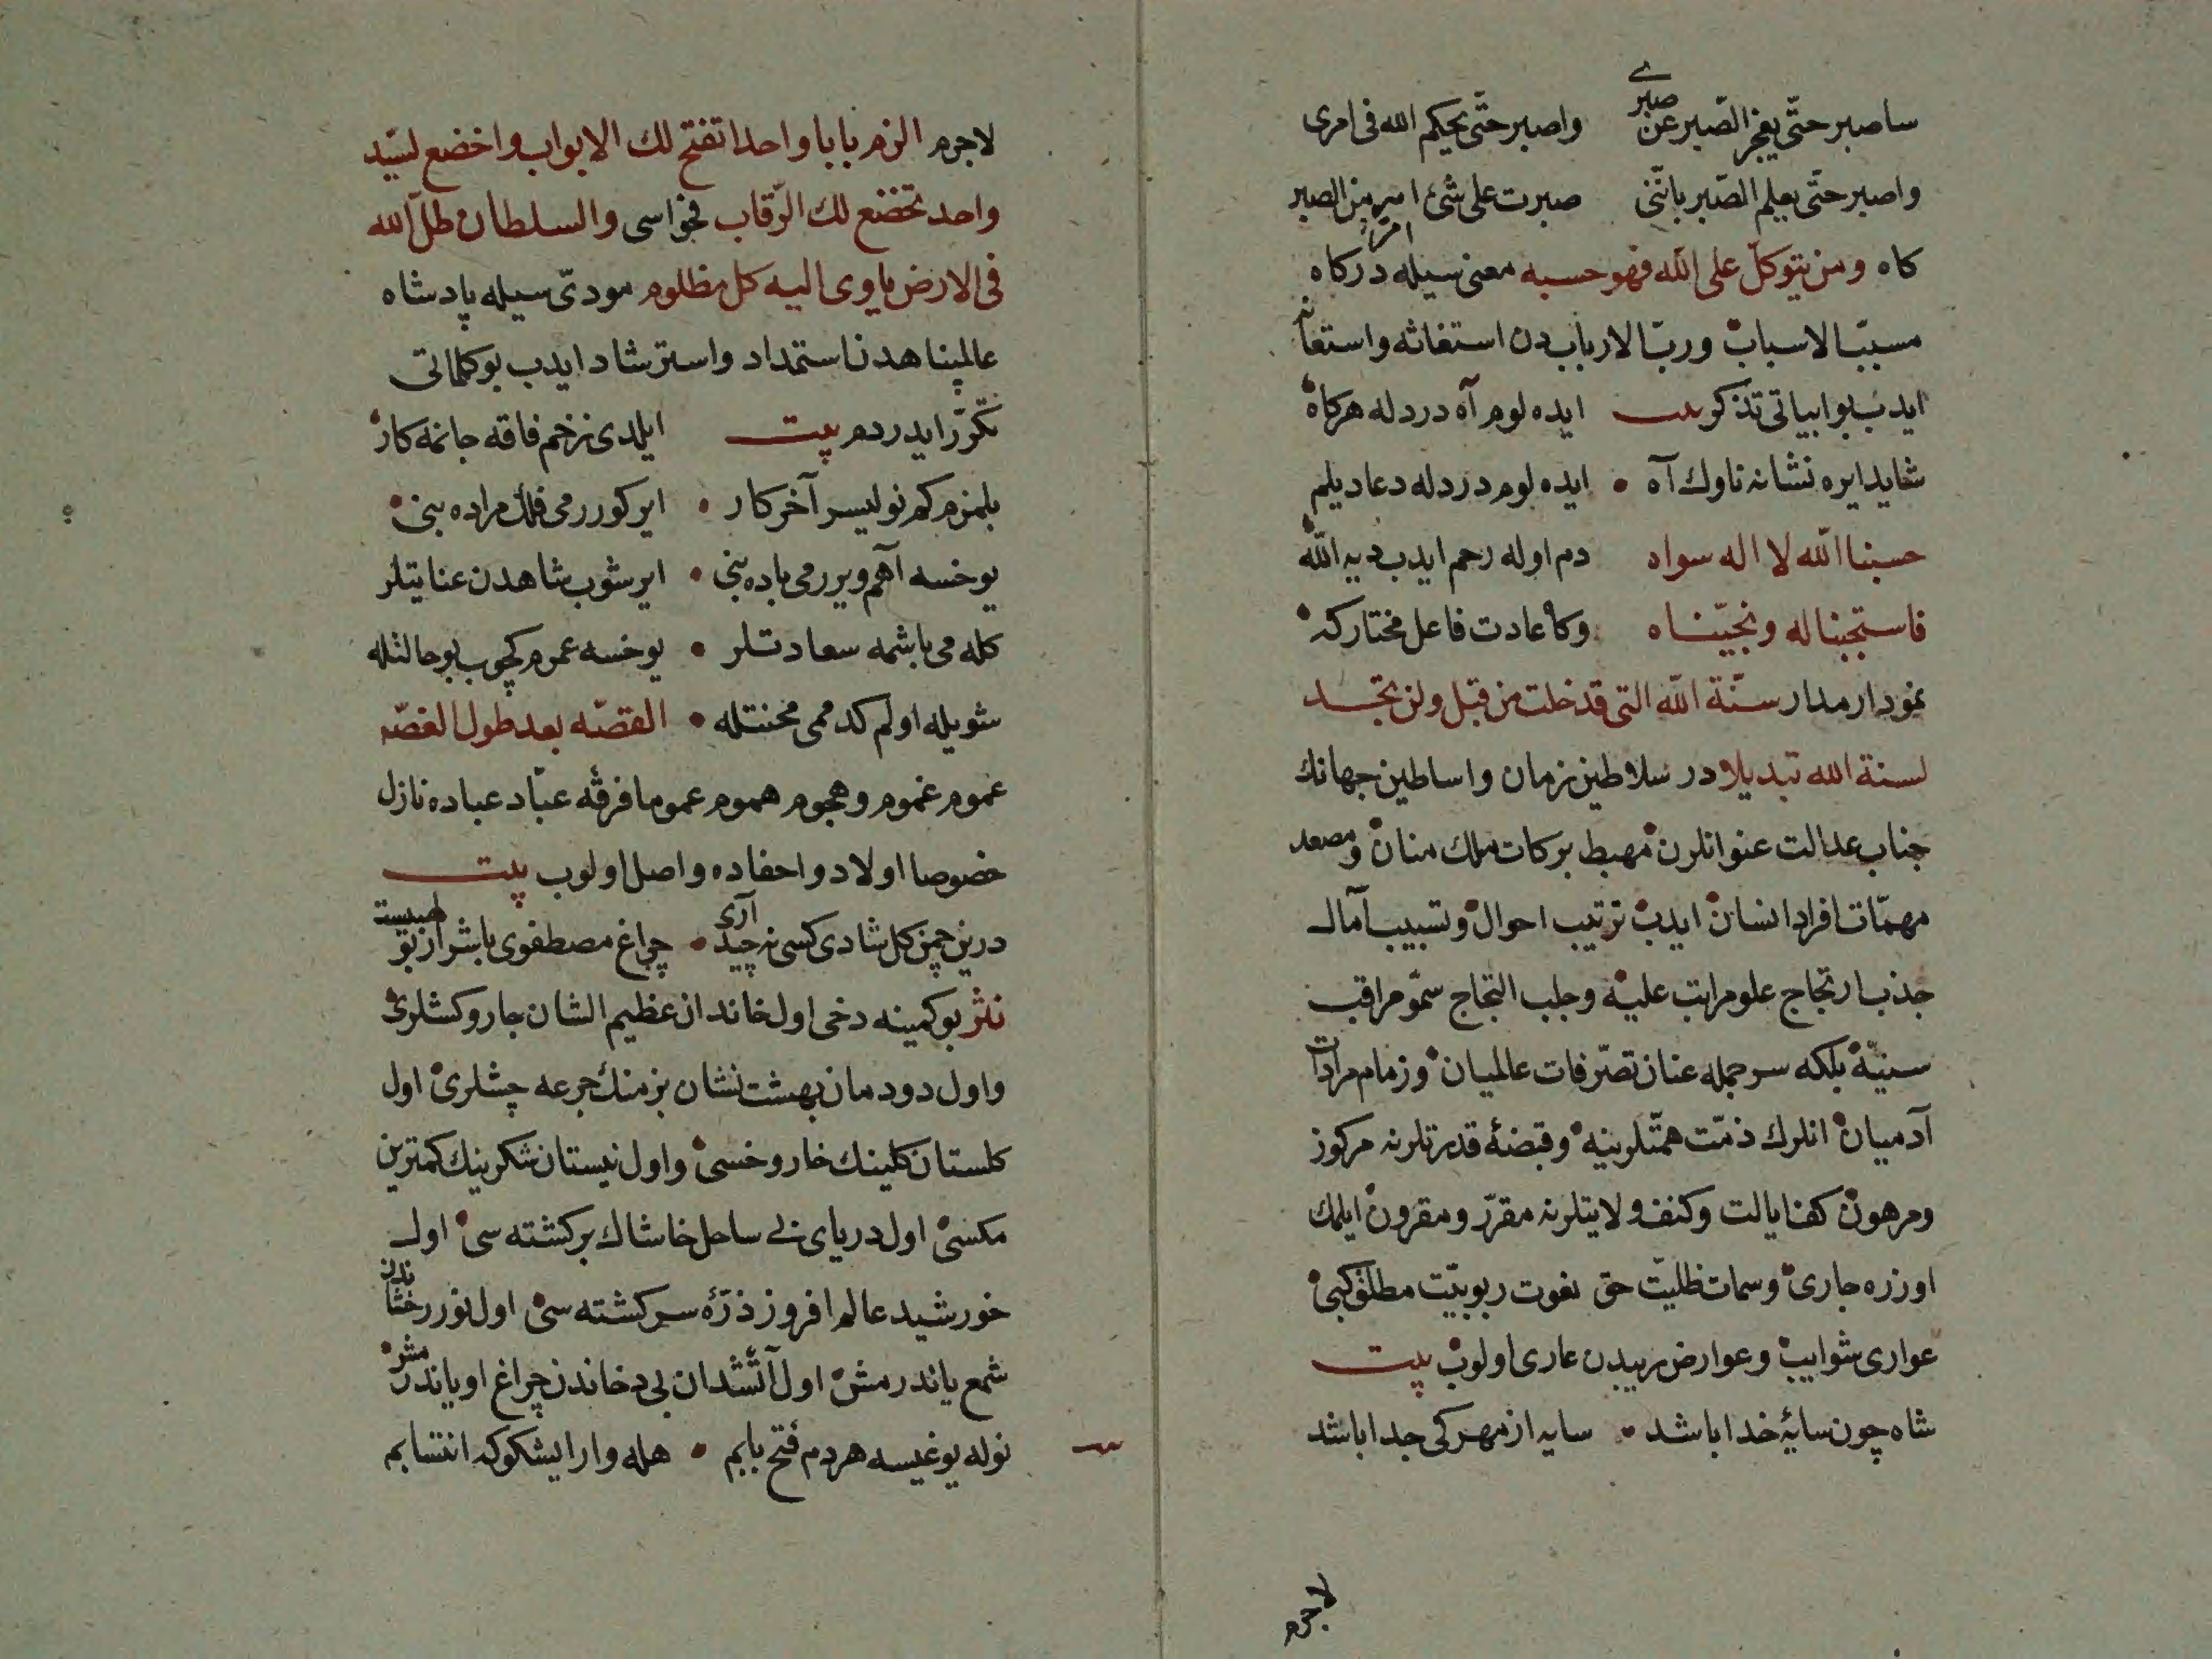 ساصبر حتّى يعجز الصّبر عن صبرى واصبر حتّى يحكم الله فى امرى
واصبر حتّى يعلم الصّبر بانّنى صبرت على شئ امر من الصبر
كاه ومن يتوكل على الله فهو حسبه معنى سيله دركاه
مسبّب الاسباب وربّ الارباب دن استغاثه واستعانه
ايدب بو ابياتى تذكر بيت ايده لوم آه درد له هركاه
شايد ايره نشانه ناوك آه • ايده لوم درد له دعا ديلم
حسبنا الله لا اله سواه دم اوله رحم ايدب ديه الله
فاستجبنا له ونجّيناه وكا عادت فاعل مختار كه
نمودار مدار سنّة الله التى قد خلت من قبل ولن تجد
لسنة الله تبديلا در سلاطين زمان واساطين جهانك
جناب عدالت عنوانلرن مهبط بركات ملك منان ومصعد
مهمّات افراد انسان ايدب ترتيب احوال وتسبيب آمال
جذب ارتجاج علو مراتب عليه وجلب التجاج سموّ مراقب
سنيّه بلكه سر جمله عنان تصرّفات عالميان وزمام مرادات
آدميان انلرك ذمّت همّتلرينه وقبضۀ قدرتلرنه مركوز
ومرهون كف ايالت وكنف ولايتلرنه مقرّر ومقرون ايلمك
اوزره جارى وسمات ظليّت حق نعوت ربوبيّت مطلق كبى
عوارى شوايب وعوارض ريبدن عارى اولوب بيت
شاه چون سايۀ خدا باشد • سايه از مهر كى جدا باشد
لاجرم
لاجرم الزم بابا واحدا تفتح لك الابواب واخضع لسيّد
واحد تخضع لك الرّقاب فحواسى والسلطان ظلّ الله
فى الارض ياوى اليه كل مظلوم مودّى سيله پادشاه
عالمپناهدن استمداد واسترشاد ايدب بو كلماتى
تكرّر ايدردم بيت ايلدى زخم فاقه جانمه كار
بلمزم كم نوليسر آخر كار • اير كوررمى فلك مراده بنى
يوخسه آهم ويررمى باده بنى • ايرشوب شاهدن عنايتلر
كله مى باشمه سعادتلر • يوخسه عمرم كچوب بو حالتله
شويله اولم كدممى محنتله • القصّه بعد طول الغصّه
عموم غموم وهجوم هموم عموما فرقۀ عبّاد عباده نازل
خصوصا اولاد واحفاده واصل اولوب بيت
درين چمن كل شادى كسى نچيد آرى • چراغ مصطفوى باشرار بولهبيست
نثر بو كمينه دخى اول خاندان عظيم الشان جاروكشلرى
واول دودمان بهشت نشان بزمنك جرعه چشلرى اول
كلستان كلينك خار وخسى واول نيستان شكرينك كمترين
مكسى اول درياى بى ساحل خاشاك بركشته سى اول
خورشيد عالم افروز ذرّۀ سركشته سى اول نور رخشاندن
شمع ياندرمش اول آتشدان بى دخاندن چراغ اوياندرمشر
نوله يوغيسه هردم فتح بابم • هله وار ايشكوكه انتسابم